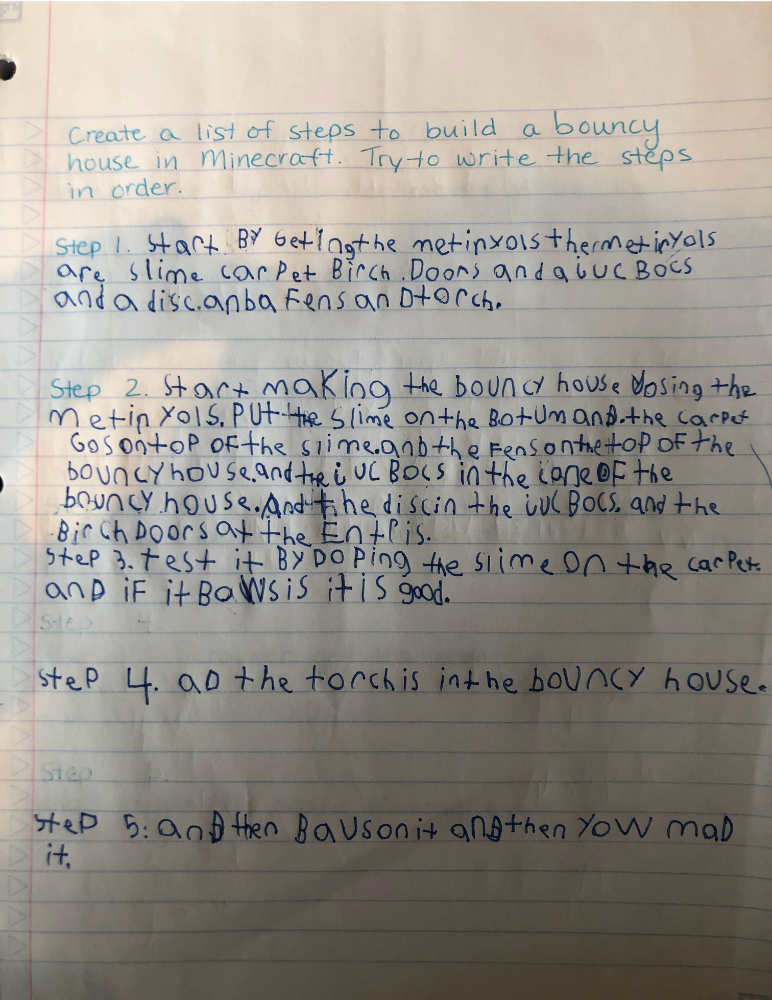 Create a list of steps to build a bouncy
house in Minecraft. Try to write the steps
in order.
Step 1. Start BY Getingthe metinxols thermetinyols
are slime carPet Birch.Doors and a iuc Bocs
and a disc.anba Fens an Dtorch.
Step 2. Start maKing the bouncy house Uosing the
metinyols. PUt the slime on the BotUm anB.the carpet
Gos ontoP OF the slime.anb the Fens on the toP OF the
bouncy house.and the iUC Bocs in the cone OF the
bouncy house.And the disc in the iUC Bocs. and the
Birch Doors at the Entris.
SteP 3. test it BY DOPing the slime On the carPet.
anD iF it BaWsis it is good.
Step 4.
SteP 4. aD the torchis in the boUncy house.
Step
SteP 5: anD then BaUs on it anD then YoW maD
it.